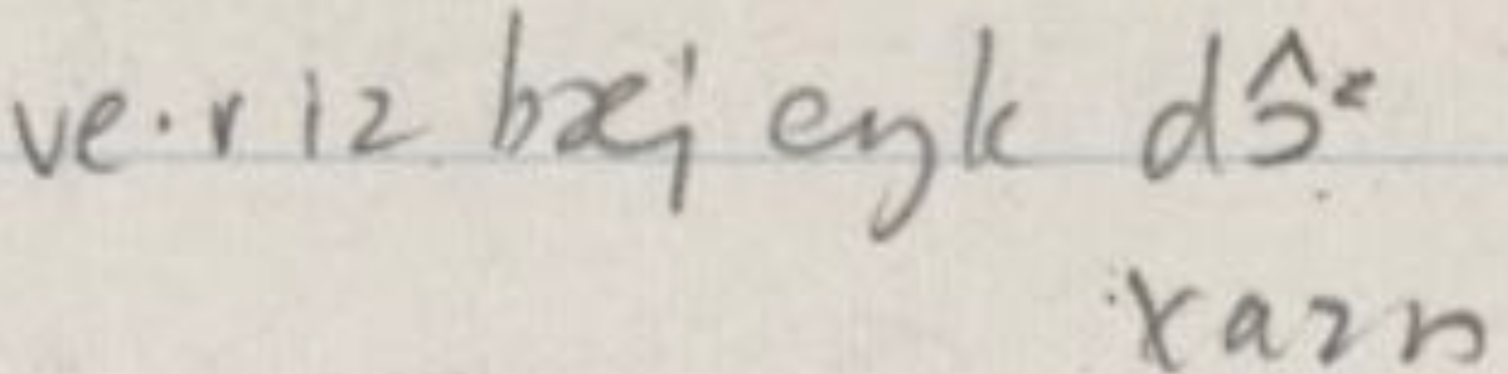 ve·r iz bæj eŋk dɔ̂ˑ
xazn